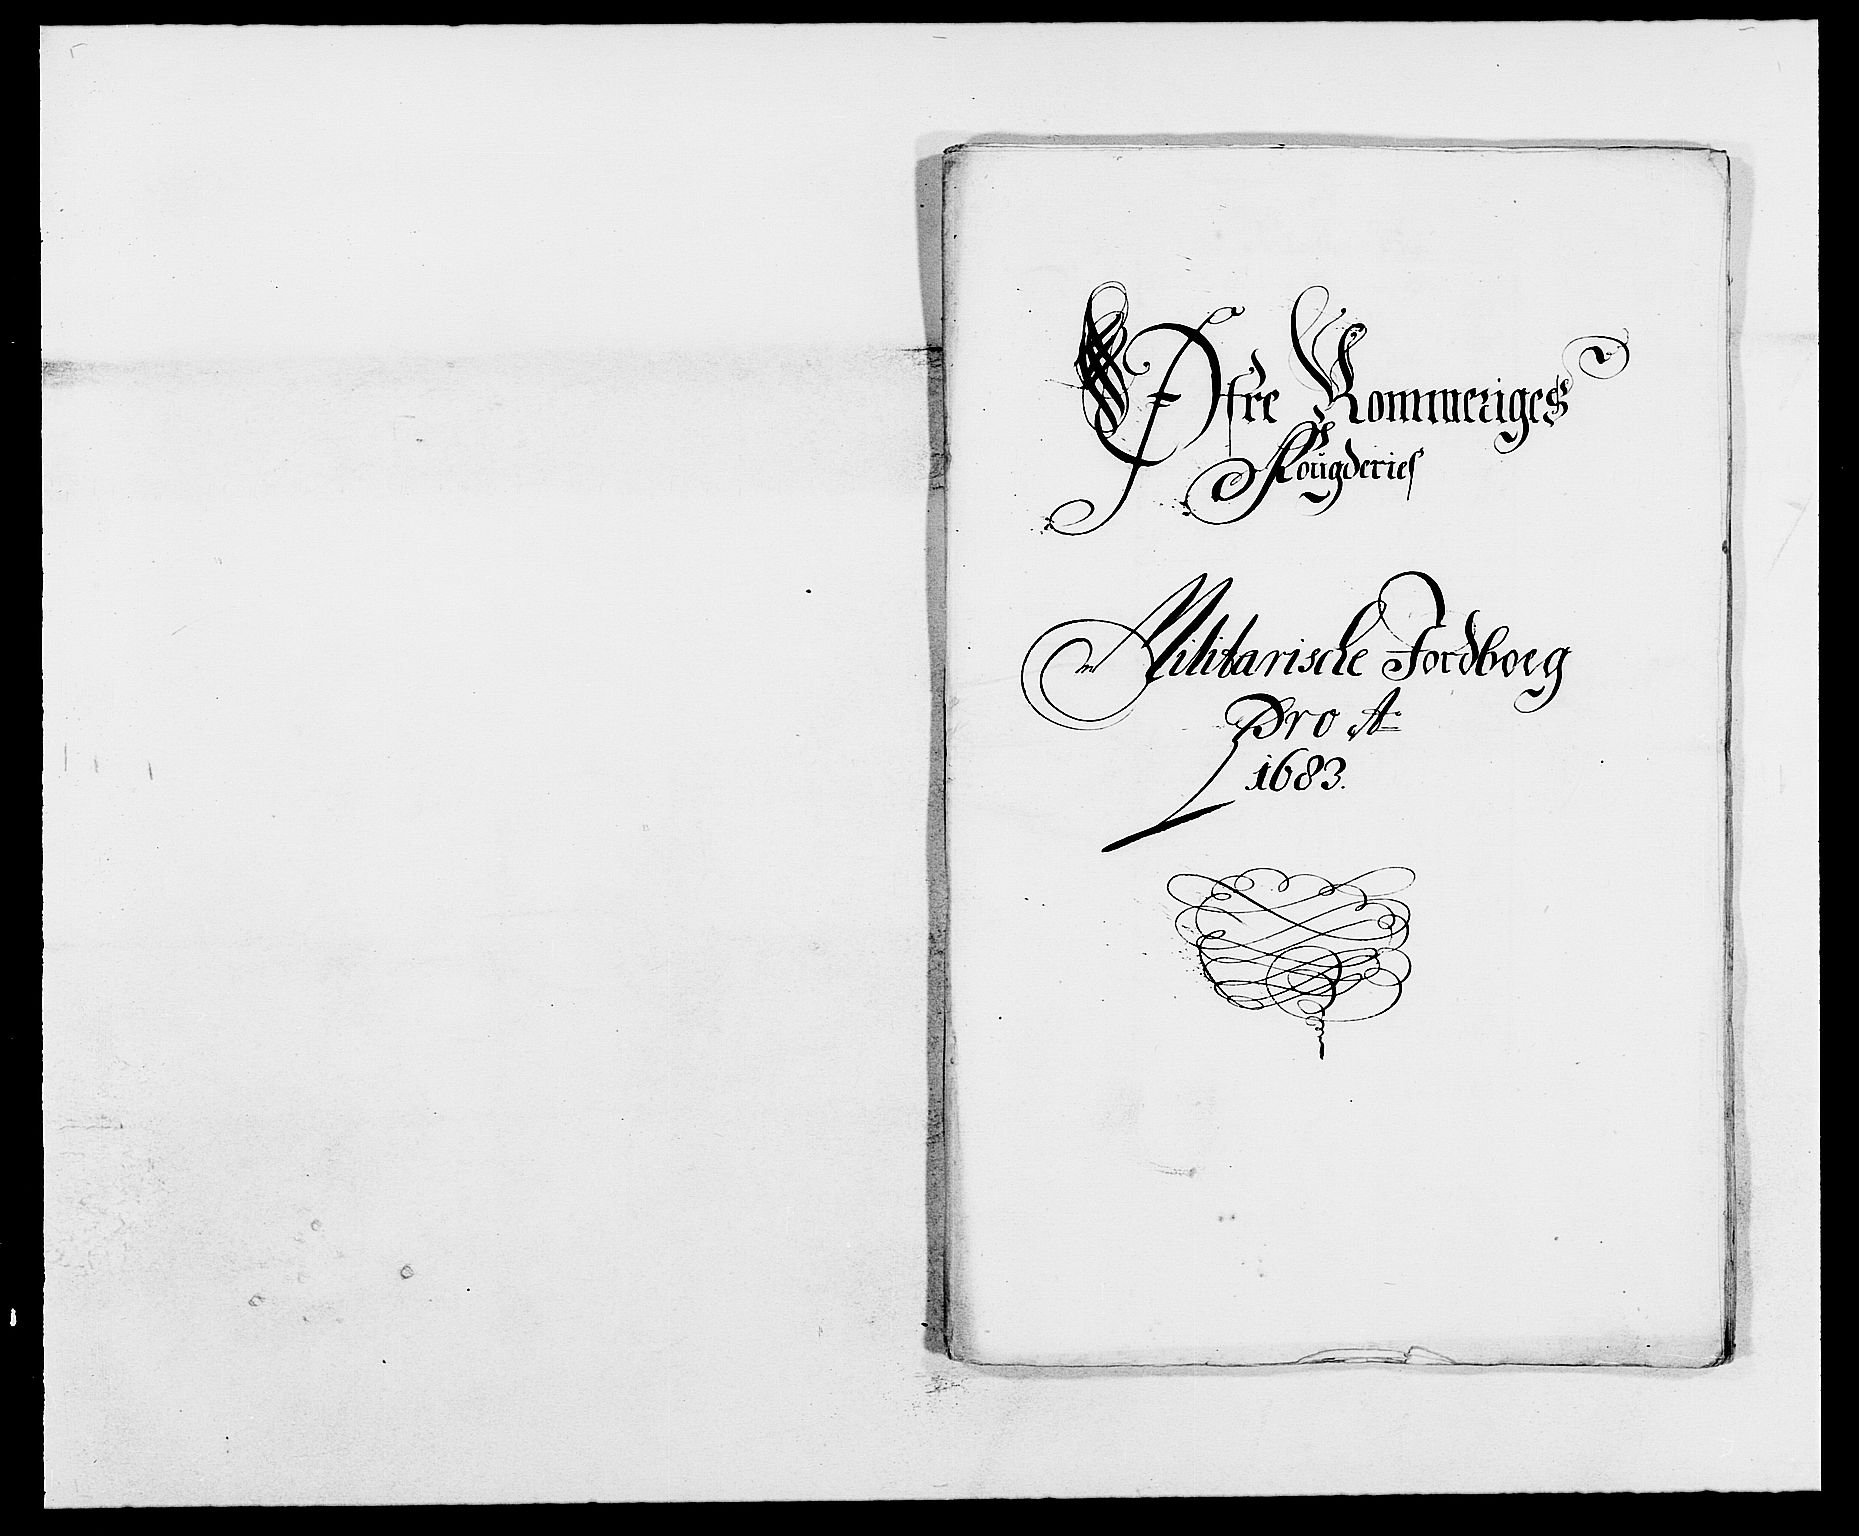 Øfre Rommeriges
Fougderies
Militarische Jordboeg
Pro Ao
1683.